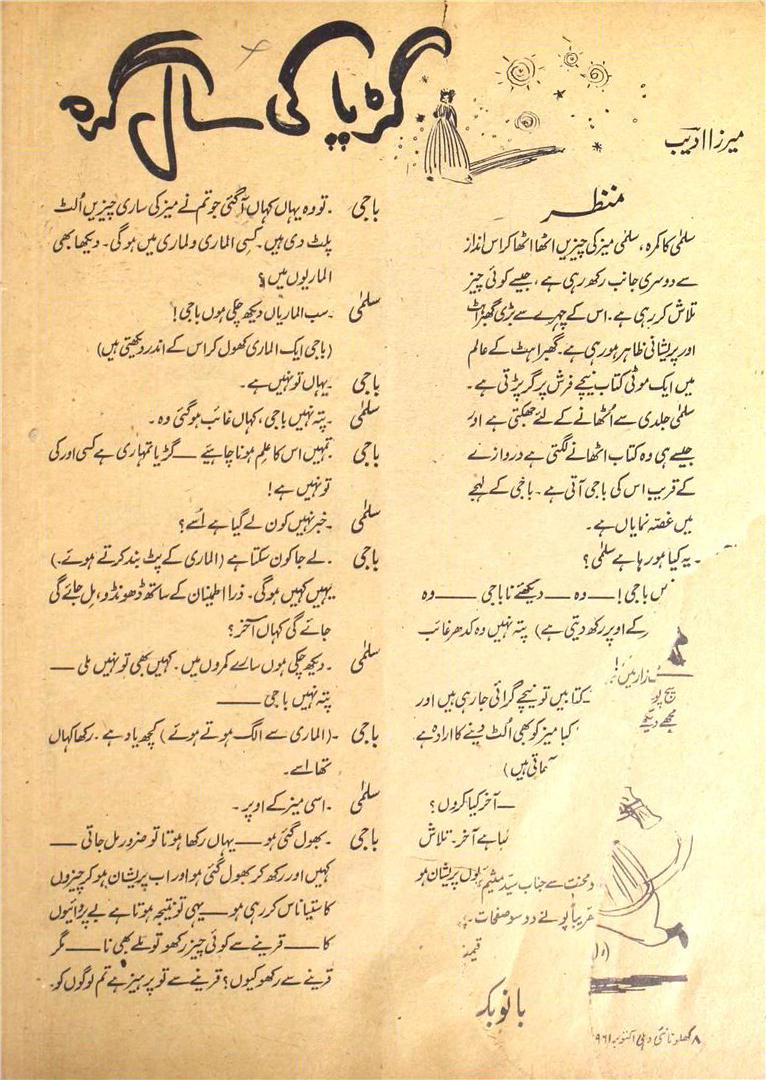 گڑیا کی سالگرہ
میرزا ادیب
منظر
سلمٰی کا کمرہ، سلمٰی میز کی چیزیں اٹھا اٹھا کر اس انداز
سے دوسری جانب رکھ رہی ہے، جیسے کوئی چیز
تلاش کر رہی ہے۔ اس کے چہرے سے بڑی گھبراہٹ
اور پریشانی ظاہر ہو رہی ہے۔ گھبراہٹ کے عالم
میں ایک موٹی کتاب نیچے فرش پر گر پڑتی ہے۔
سلمٰی جلدی سے اُٹھانے کے لئے جھکتی ہے اور
جیسے ہی وہ کتاب اٹھانے لگتی ہے دروازے
کے قریب اس کی باجی آتی ہے۔ باجی کے لہجے
میں غصّہ نمایاں ہے۔
۔ یہ کیا ہو رہا ہے سلمٰی؟
باجی! —— وہ —— دیکھئے نا باجی —— وہ
کے اوپر رکھ دیتی ہے) پتہ نہیں وہ کدھر غائب
کتابیں تو نیچے گرائی جا رہی ہیں اور
کیا میز کو بھی اُلٹ دینے کا ارادہ ہے
—آخر کیا کروں؟
ہے آخر۔ تلاش
یوں پریشان ہو
و محنت سے جناب سیّد
تقریباً پونے دو سو صفحات۔
بانو بک
۸ کھلونا نئی دہلی اکتوبر ۱۹۶۱
باجی ۔ تو وہ یہاں کہاں آ گئی جو تم نے میز کی ساری چیزیں اُلٹ
پلٹ دی ہیں۔ کسی الماری ولماری میں ہو گی۔ دیکھا بھی
الماریوں میں؟
سلمٰی ۔ سب الماریاں دیکھ چکی ہوں باجی!
(باجی ایک الماری کھول کر اس کے اندر دیکھتی ہیں)
باجی ۔ یہاں تو نہیں ہے۔
سلمٰی ۔ پتہ نہیں باجی، کہاں غائب ہو گئی وہ۔
باجی ۔ تمہیں اس کا علم ہونا چاہئے —— گڑیا تمہاری ہے کسی اور کی
تو نہیں ہے!
سلمٰی ۔ خبر نہیں کون لے گیا ہے اُسے؟
باجی ۔ لے جا کون سکتا ہے (الماری کے پٹ بند کرتے ہوئے۔)
یہیں کہیں ہو گی۔ ذرا اطمینان کے ساتھ ڈھونڈو، مل جائے گی
جائے گی کہاں آخر؟
سلمٰی ۔ دیکھ چکی ہوں سارے کمروں میں۔ کہیں بھی تو نہیں ملی ——
پتہ نہیں باجی ——
باجی ۔ (الماری سے الگ ہوتے ہوئے) کچھ یاد ہے۔ رکھا کہاں
تھا اسے۔
سلمٰی ۔ اسی میز کے اوپر۔
باجی ۔ بھول گئی ہو —— یہاں رکھا ہوتا تو ضرور مل جاتی ——
کہیں اور رکھ کر بھول گئی ہو اور اب پریشان ہو کر چیزوں
کا ستیاناس کر رہی ہو —— یہی تو نتیجہ ہوتا ہے بے پرائیوں
کا —— قرینے سے کوئی چیز رکھو تو ملے بھی نا —— مگر
قرینے سے رکھو کیوں؟ قرینے سے تو پرہیز ہے تم لوگوں کو۔